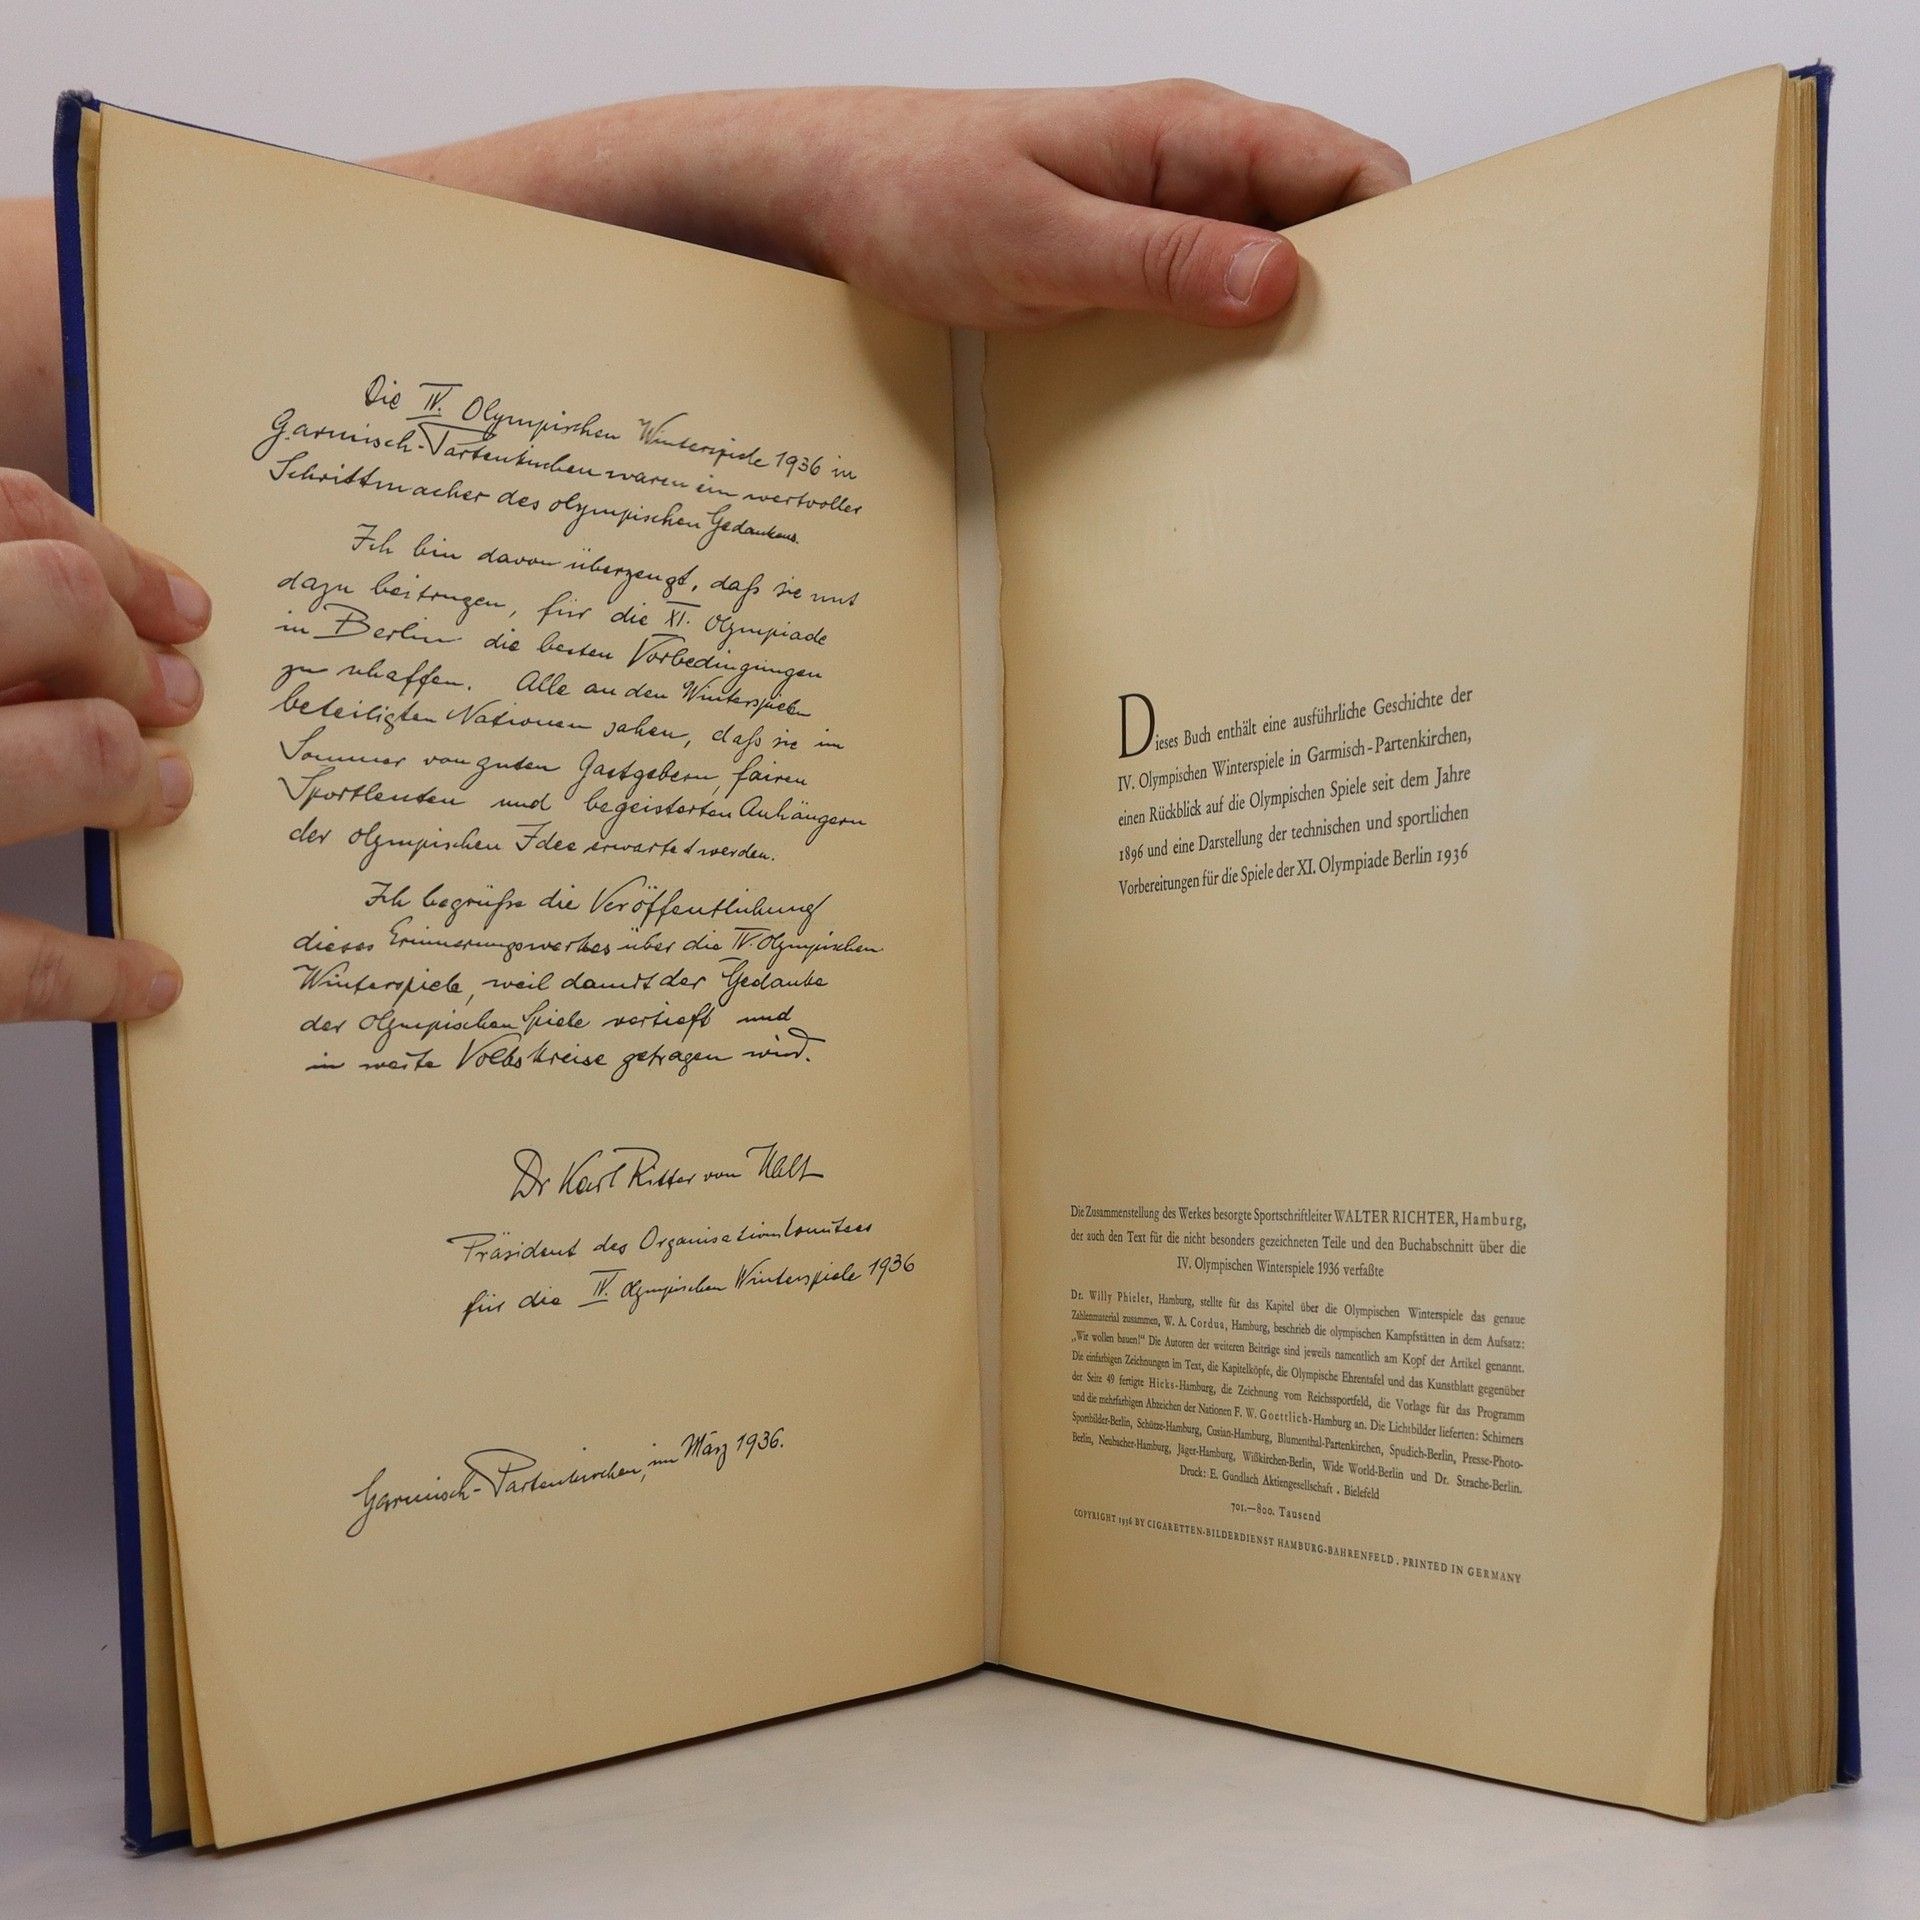 Die IV. Olympischen Winterspiele 1936 in
Garmisch-Partenkirchen waren ein wertvoller
Schrittmacher des olympischen Gedankens.
Ich bin davon überzeugt, daß sie mit
dazu beitrugen, für die XI. Olympiade
in Berlin die besten Vorbedingungen
zu schaffen. Alle an den Winterspielen
beteiligten Nationen sahen, daß sie im
Sommer von guten Gastgebern, fairen
Sportleuten und begeisterten Anhängern
der olympischen Idee erwartet werden.
Ich begrüße die Veröffentlichung
dieses Erinnerungswerkes über die IV. Olympischen
Winterspiele, weil damit der Gedanke
der Olympischen Spiele vertieft und
in weite Volkskreise getragen wird.
Dr Karl Ritter von Halt
Präsident des Organisationskomitees
für die IV. Olympischen Winterspiele 1936
Garmisch-Partenkirchen, im März 1936.
Dieses Buch enthält eine ausführliche Geschichte der
IV. Olympischen Winterspiele in Garmisch-Partenkirchen,
einen Rückblick auf die Olympischen Spiele seit dem Jahre
1896 und eine Darstellung der technischen und sportlichen
Vorbereitungen für die Spiele der XI. Olympiade Berlin 1936
Die Zusammenstellung des Werkes besorgte Sportschriftleiter WALTER RICHTER, Hamburg,
der auch den Text für die nicht besonders gezeichneten Teile und den Buchabschnitt über die
IV. Olympischen Winterspiele 1936 verfaßte
Dr. Willy Phieler, Hamburg, stellte für das Kapitel über die Olympischen Winterspiele das genaue
Zahlenmaterial zusammen, W. A. Cordua, Hamburg, beschrieb die olympischen Kampfstätten in dem Aufsatz:
„Wir wollen bauen!“ Die Autoren der weiteren Beiträge sind jeweils namentlich am Kopf der Artikel genannt.
Die einfarbigen Zeichnungen im Text, die Kapitelköpfe, die Olympische Ehrentafel und das Kunstblatt gegenüber
der Seite 49 fertigte Hicks-Hamburg, die Zeichnung vom Reichssportfeld, die Vorlage für das Programm
und die mehrfarbigen Abzeichen der Nationen F. W. Goettlich-Hamburg an. Die Lichtbilder lieferten: Schirners
Sportbilder-Berlin, Schütze-Hamburg, Cusian-Hamburg, Blumenthal-Partenkirchen, Spudich-Berlin, Presse-Photo-
Berlin, Neubacher-Hamburg, Jäger-Hamburg, Wißkirchen-Berlin, Wide World-Berlin und Dr. Strache-Berlin.
Druck: E. Gundlach Aktiengesellschaft . Bielefeld
701.—800. Tausend
COPYRIGHT 1936 BY CIGARETTEN-BILDERDIENST HAMBURG-BAHRENFELD . PRINTED IN GERMANY